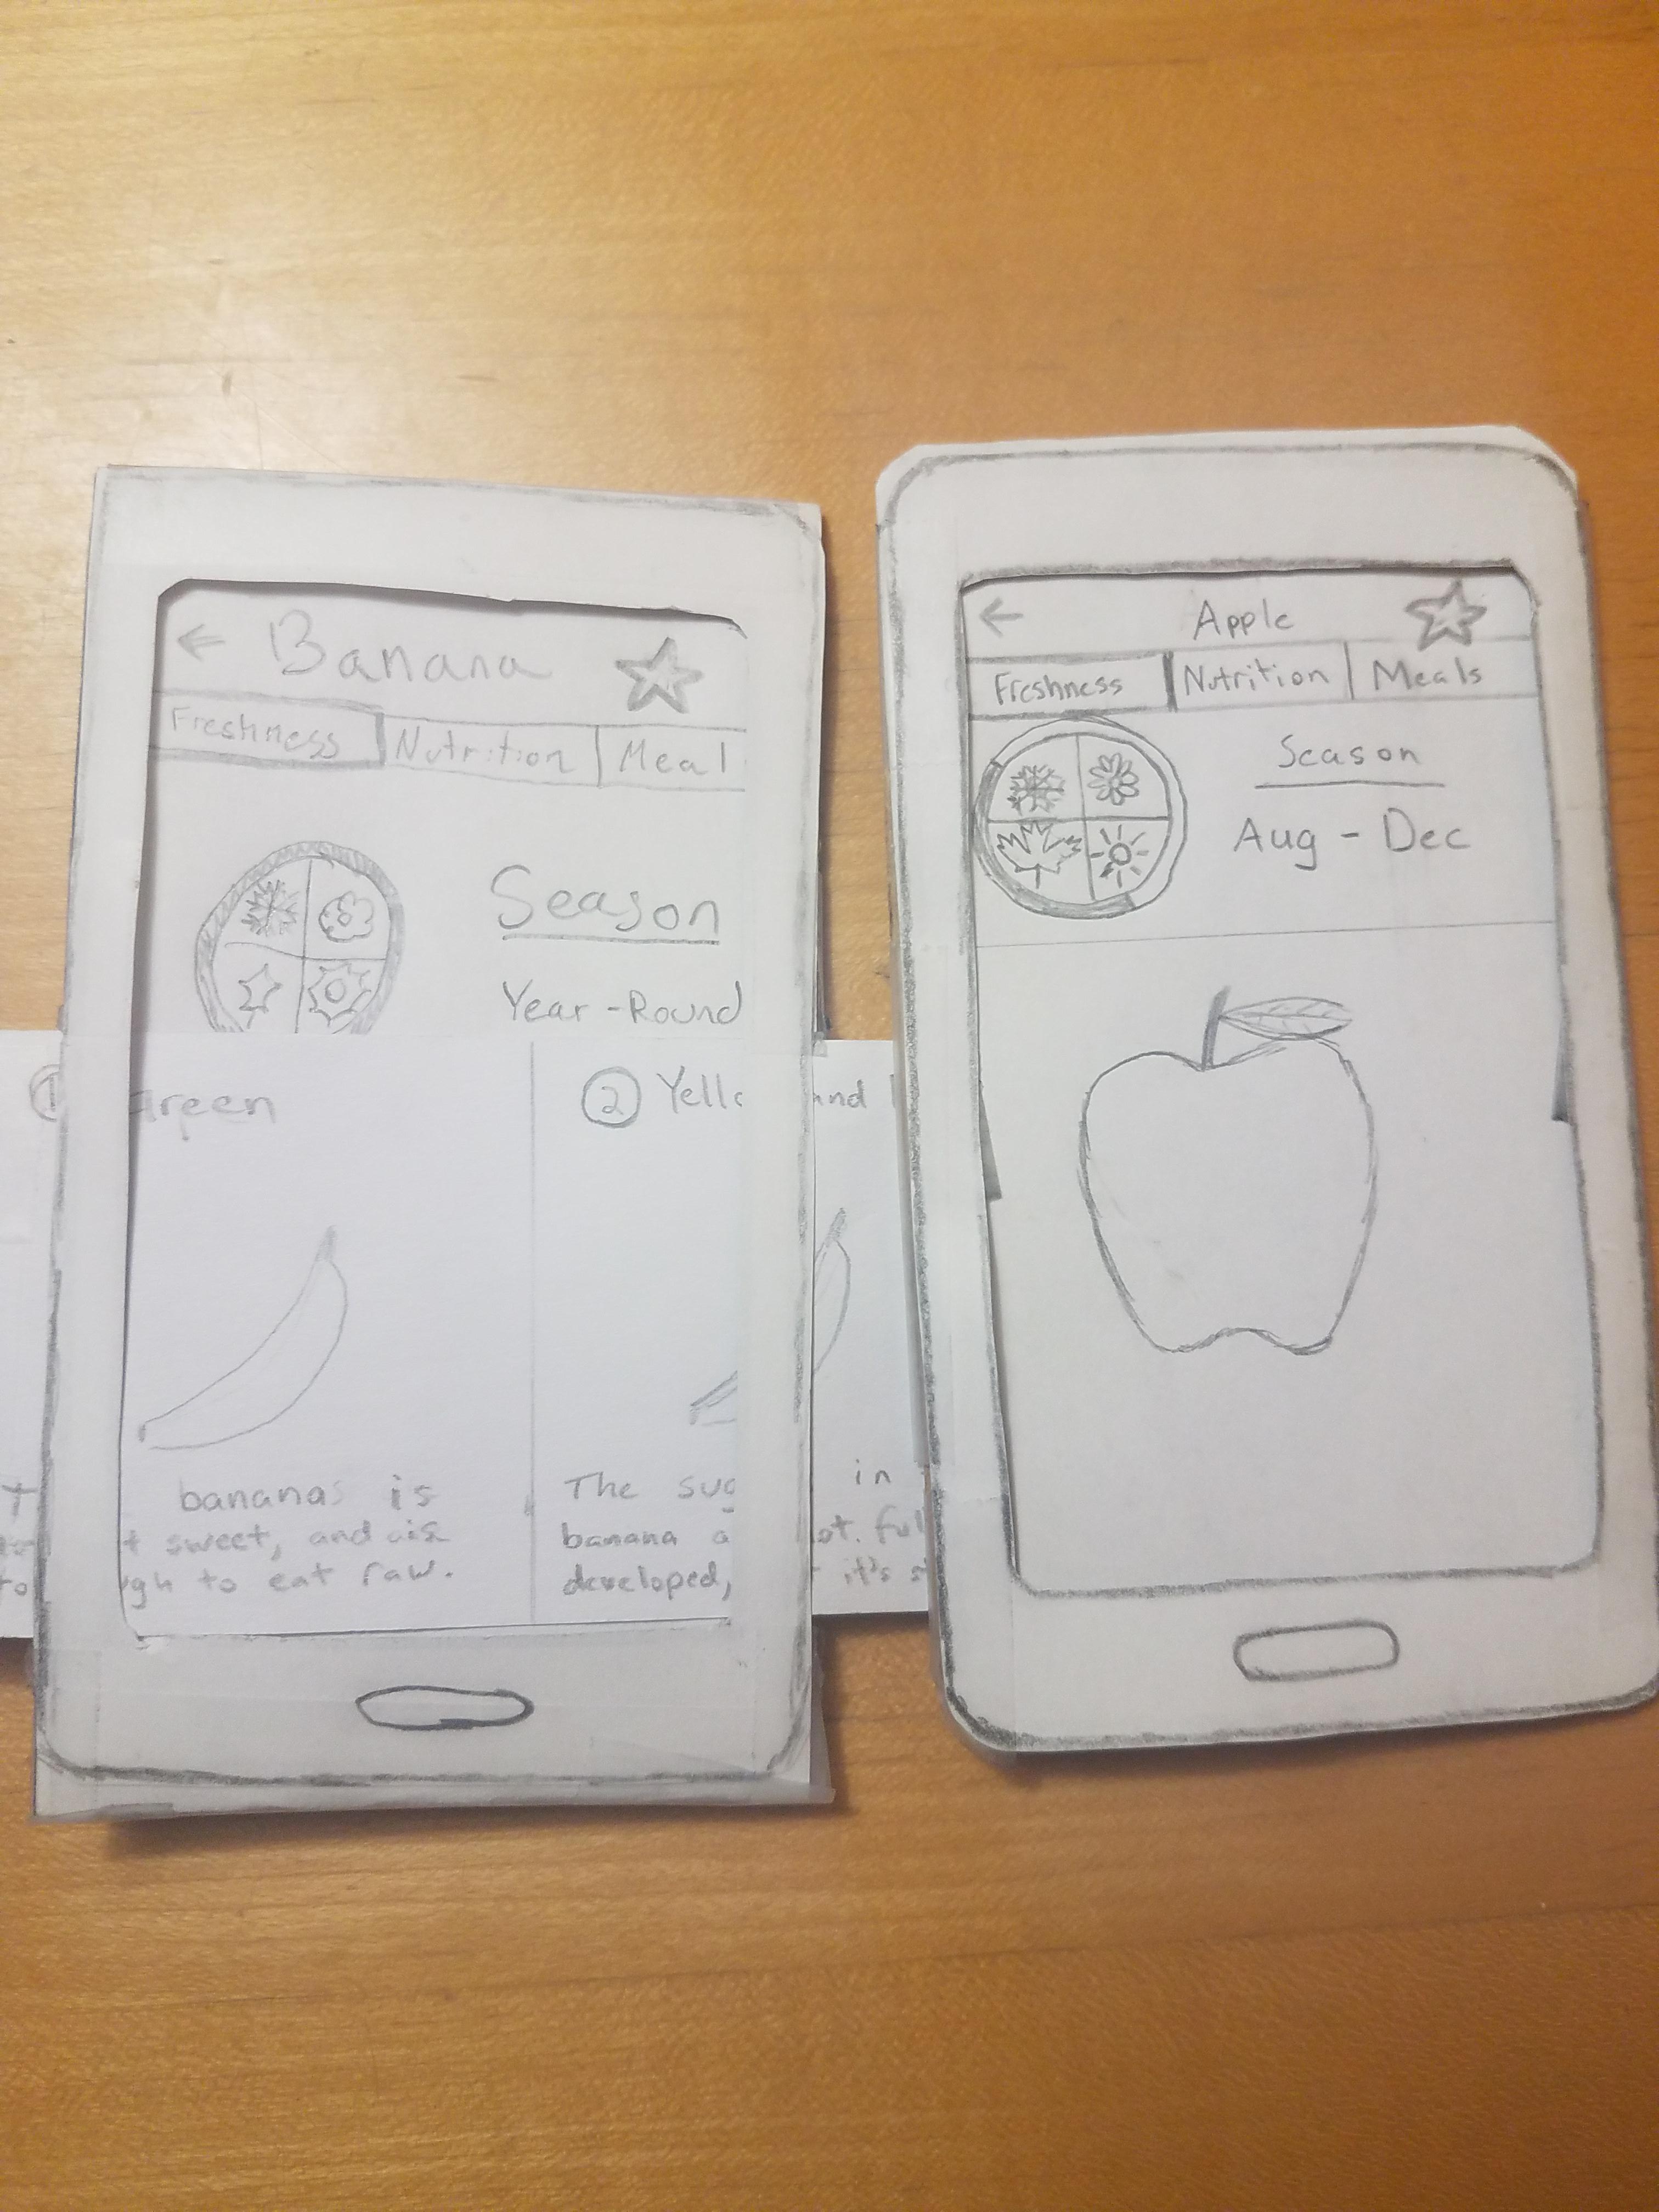 Banana
Freshness Nutrition Meal
Season
Year-Round
① Green
② Yello and
bananas is
t sweet, and
gh to eat raw.
The sug in
banana a ot ful
developed, it's s
Apple
Freshness Nutrition Meals
Season
Aug - Dec